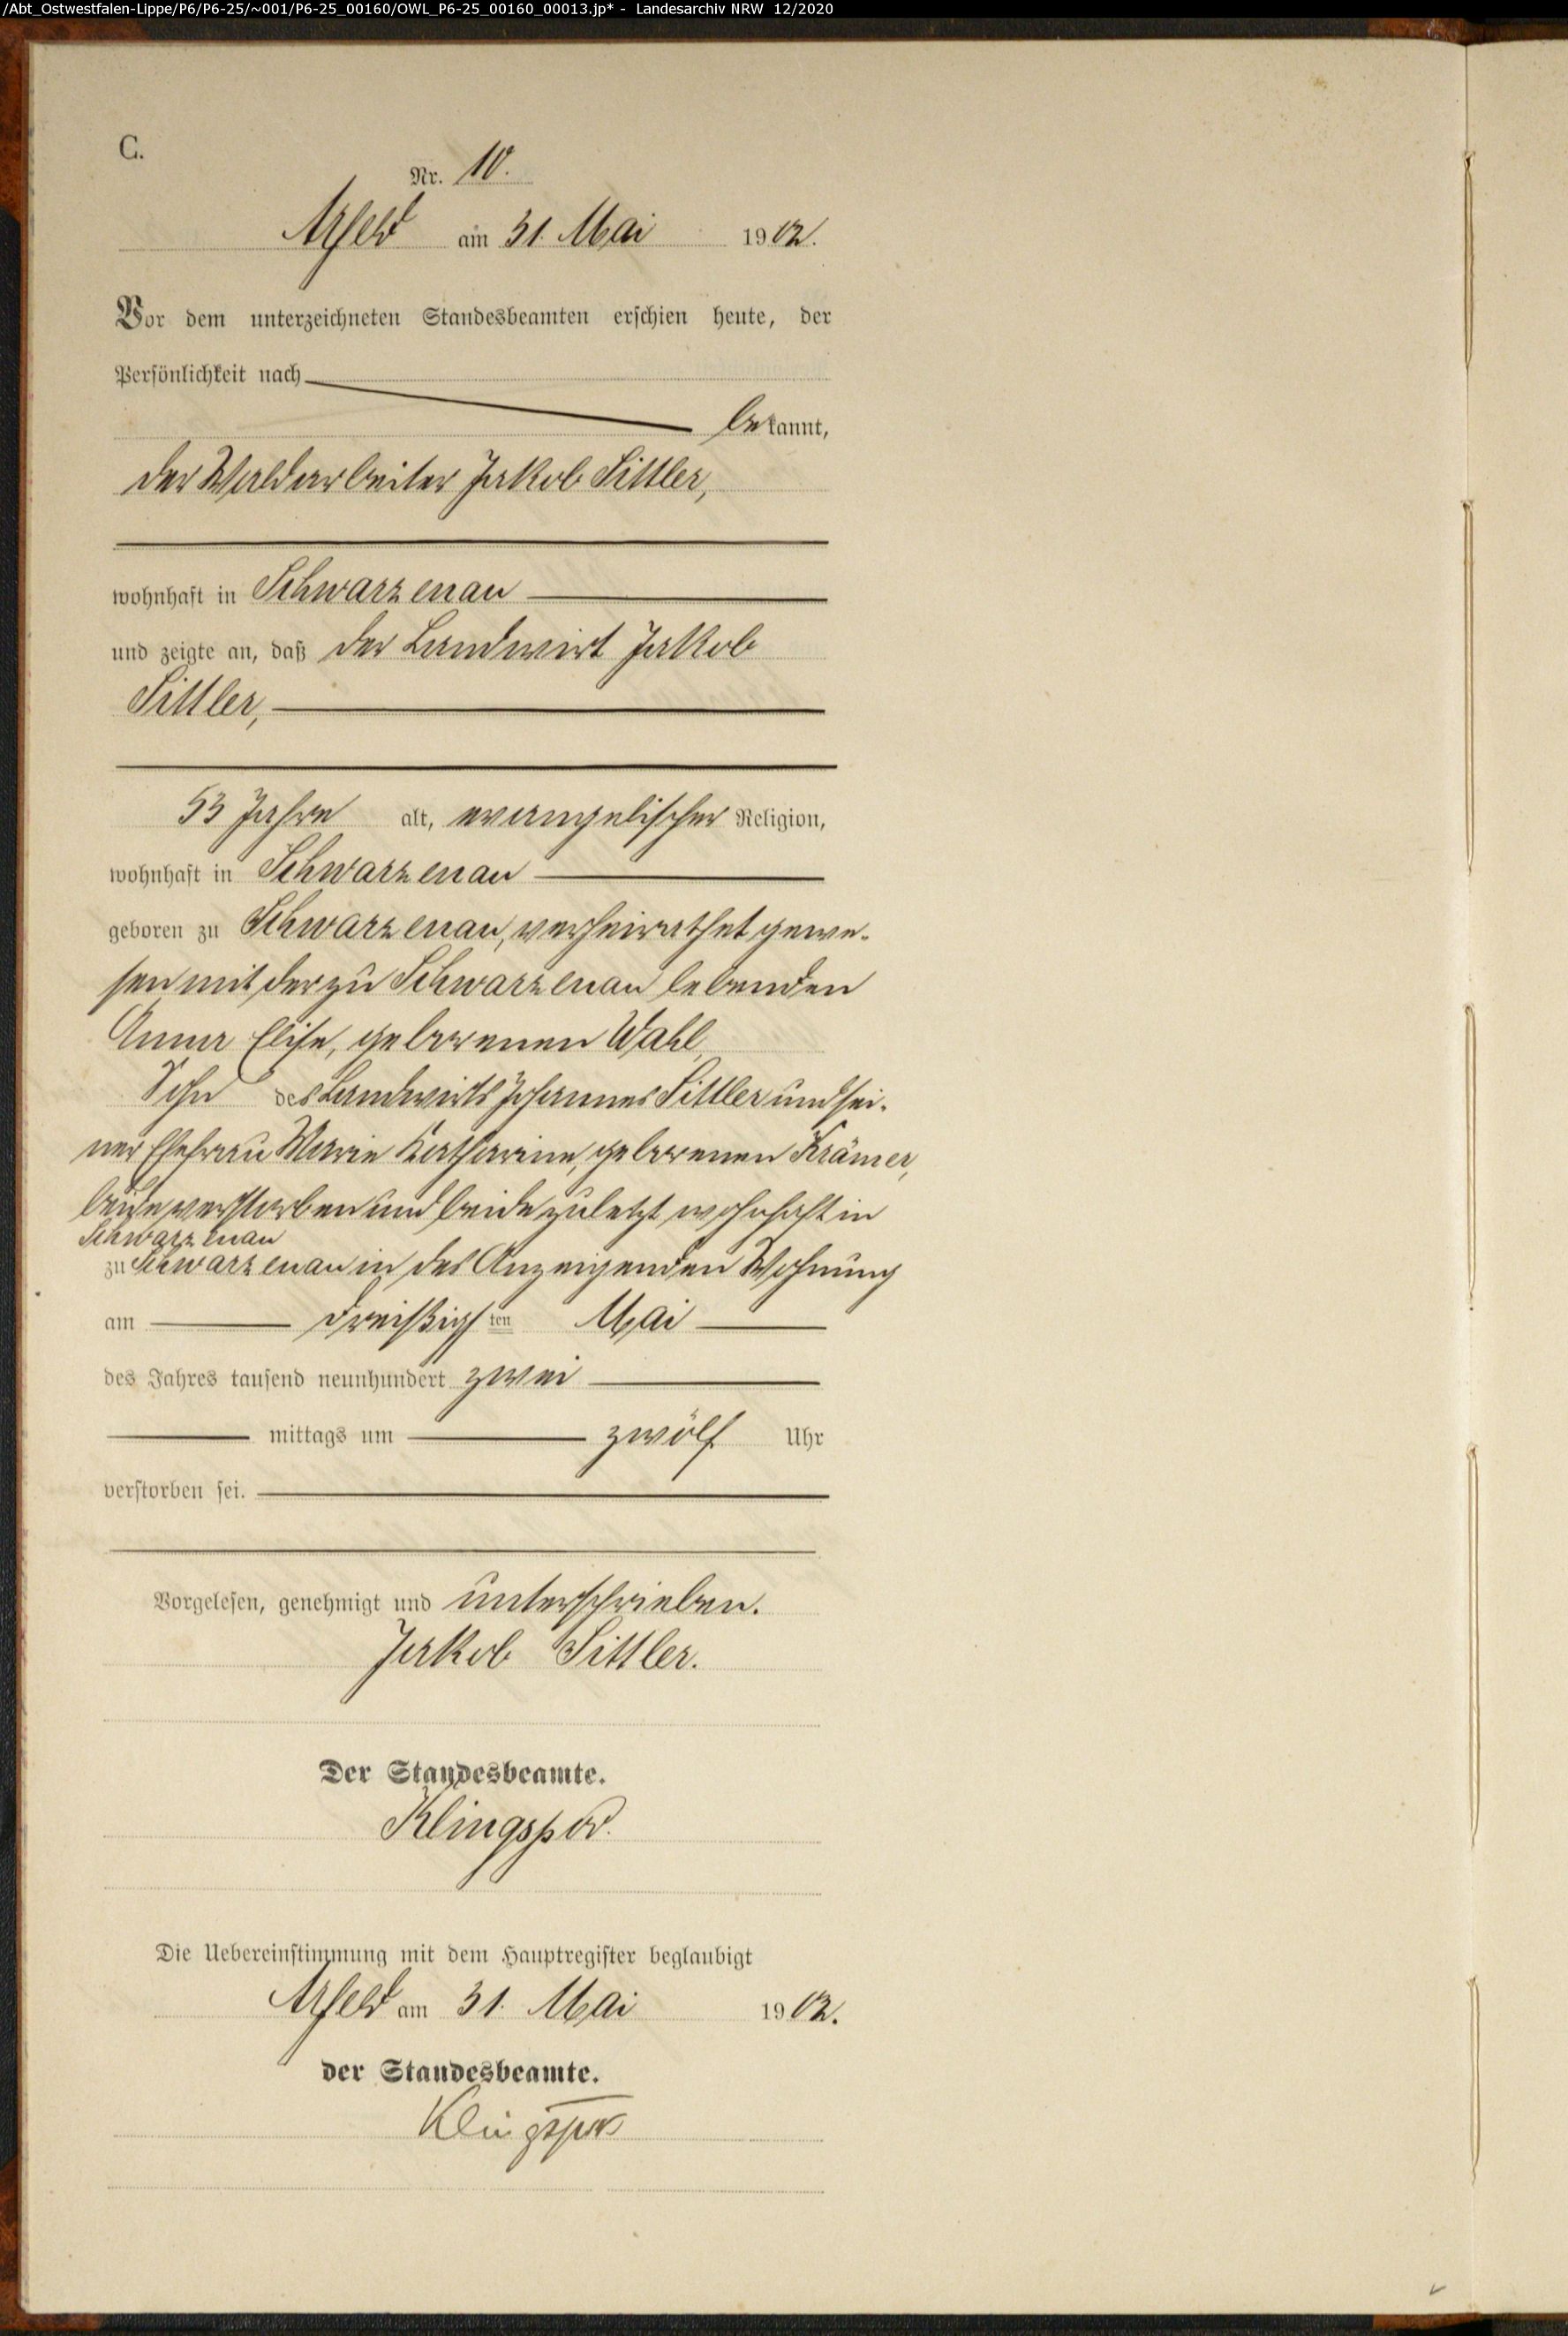 /Abt_Ostwestfalen-Lippe/P6/P6-25/~001/P6-25_00160/OWL_P6-25_00160_00013.jp* - Landesarchiv NRW 12/2020
C.
Nr. 10.
Arfeld am 31. Mai 1902.
Vor dem unterzeichneten Standesbeamten erschien heute, der
Persönlichkeit nach
bekannt,
der Waldarbeiter Jakob Sittler,
wohnhaft in Schwarzenau
und zeigte an, daß der Landwirt Jakob
Sittler,
53 Jahre alt, evangelischer Religion,
wohnhaft in Schwarzenau
geboren zu Schwarzenau, verheirathet gewe-
sen mit der zu Schwarzenau lebenden
Anna Elise, geborenen Wahl,
Sohn des Landwirts Johannes Sittler und sei-
ner Ehefrau Marie Katharine, geborenen Krämer,
beide verstorben und beide zuletzt wohnhaft in
Schwarzenau
zu Schwarzenau in des Anzeigenden Wohnung
am dreißigsten Mai
des Jahres tausend neunhundert zwei
mittags um zwölf Uhr
verstorben sei.
Vorgelesen, genehmigt und unterschrieben.
Jakob Sittler.
Der Standesbeamte.
Klingspor.
Die Uebereinstimmung mit dem Hauptregister beglaubigt
Arfeld am 31. Mai 1902.
der Standesbeamte.
Klingspor